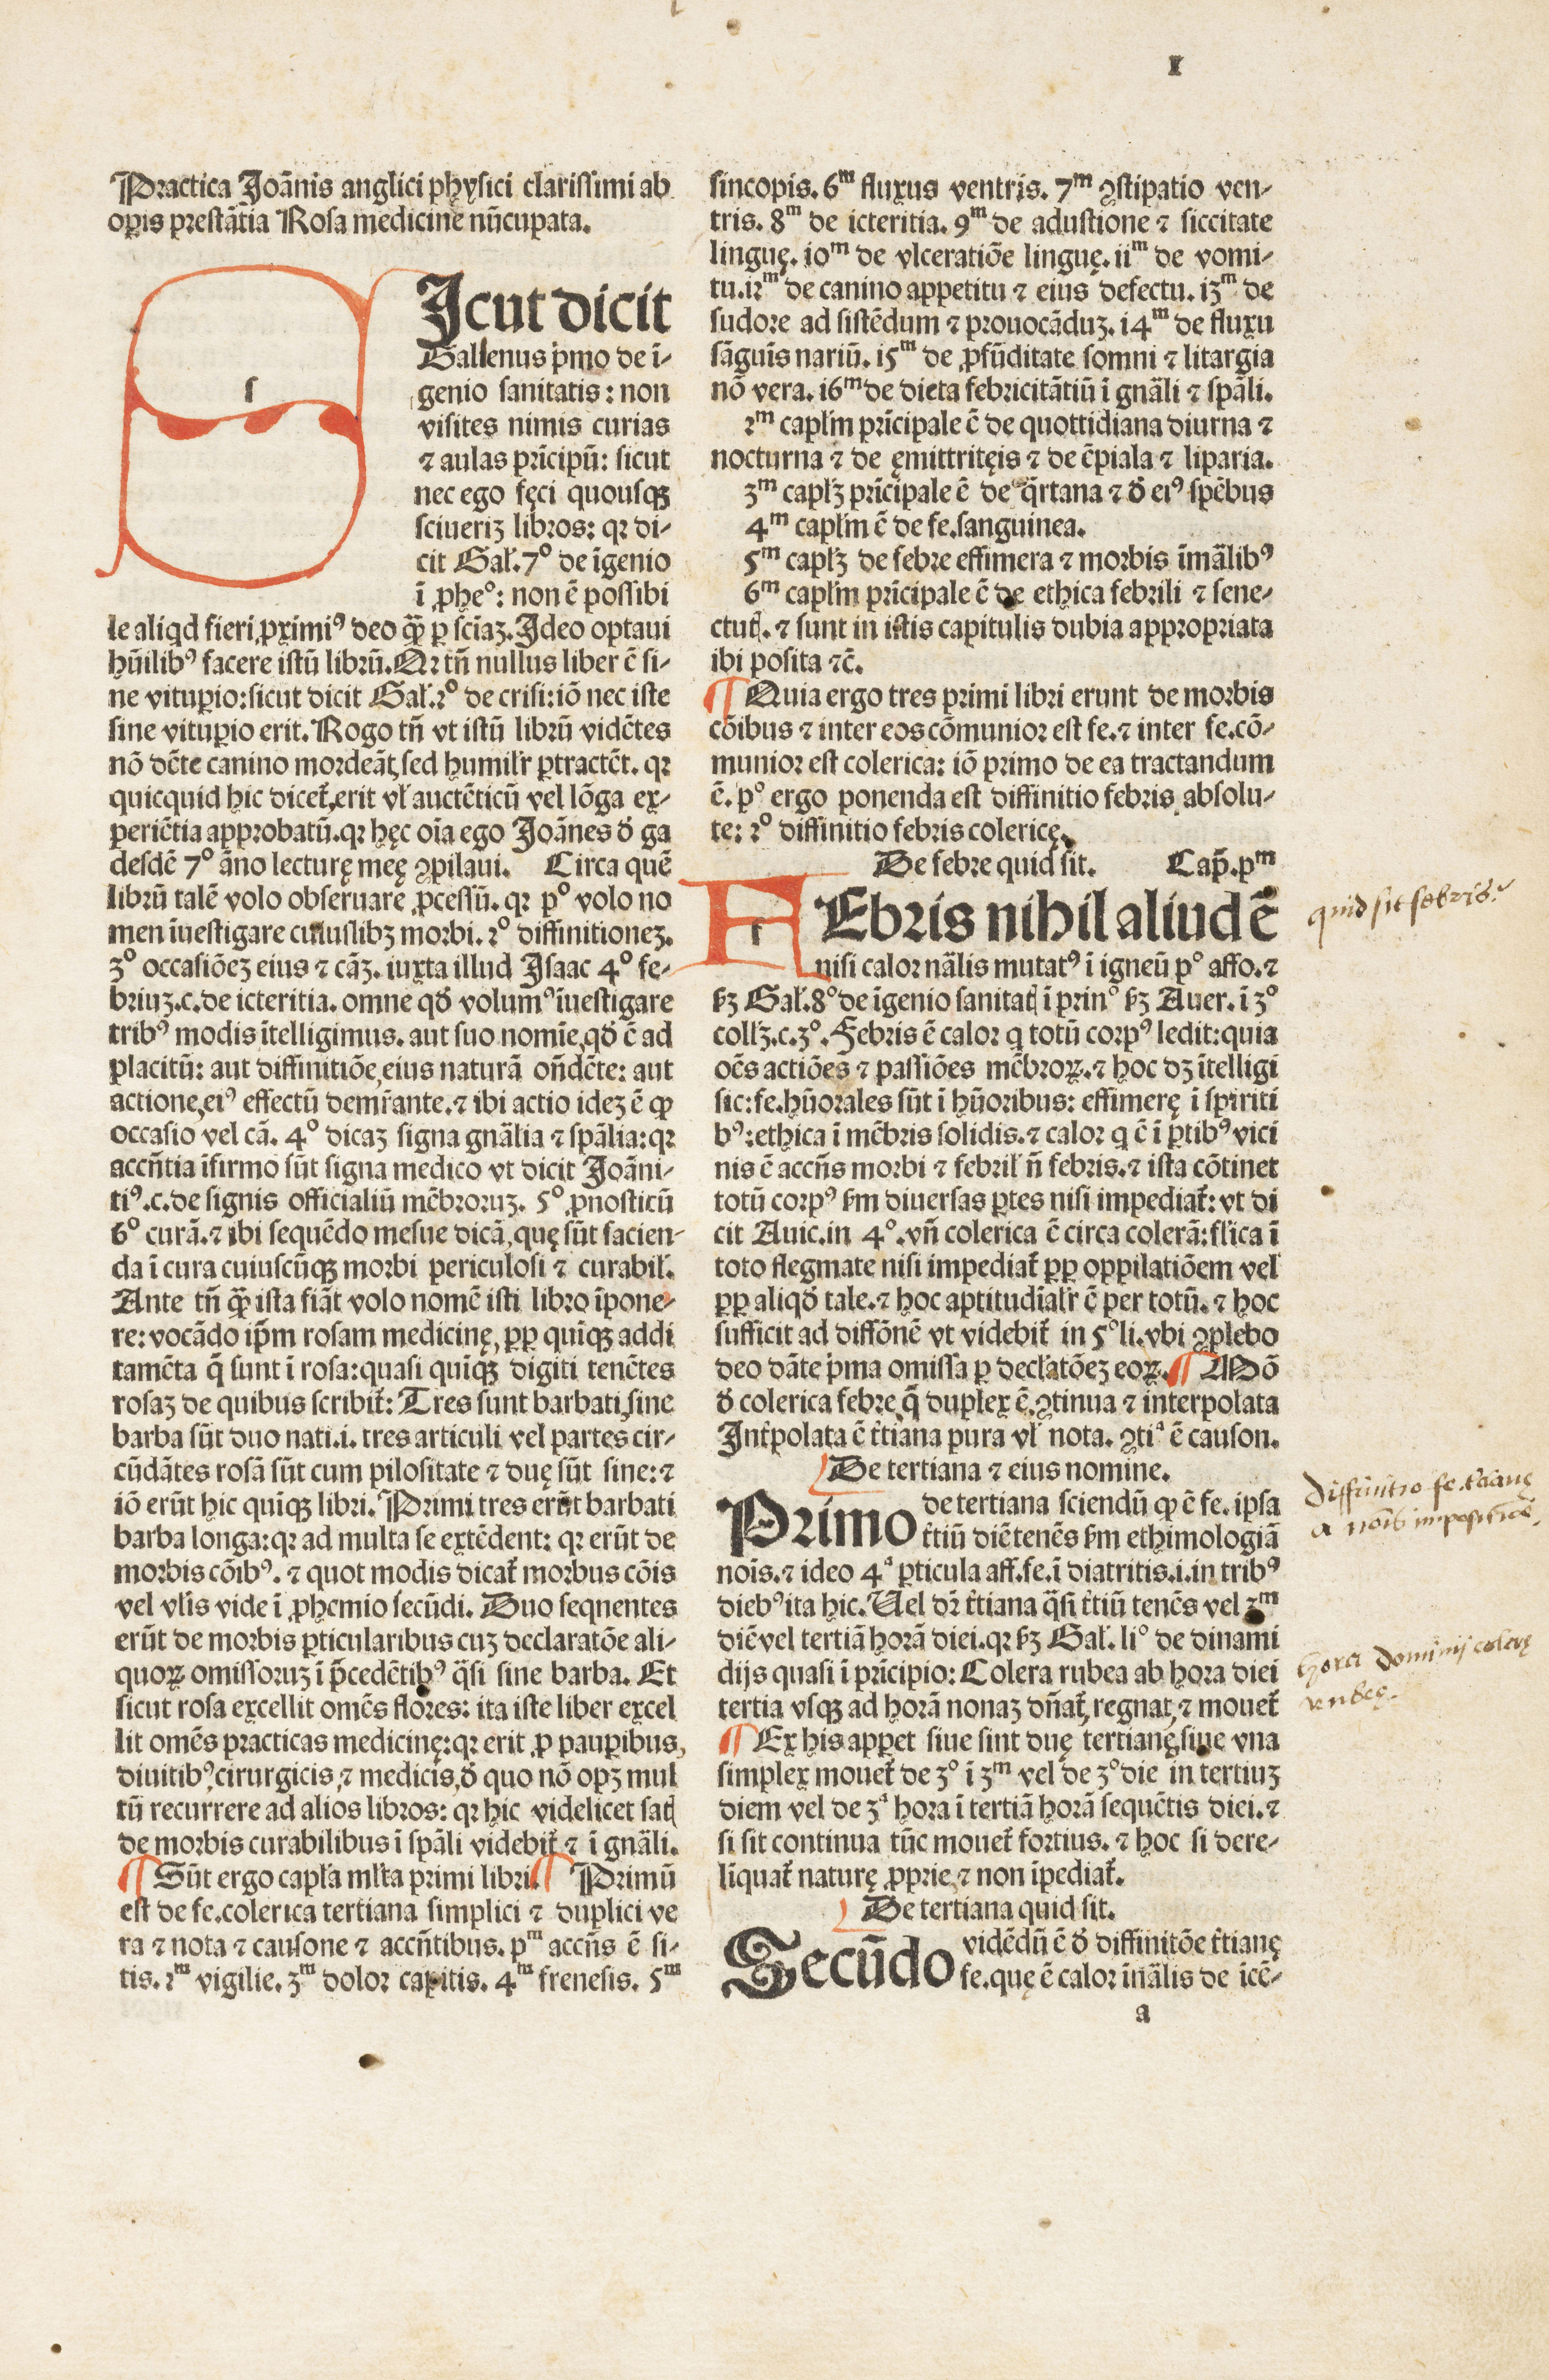 I
Practica Joãnis anglici physici clarissimi ab
oꝑis prestãtia Rosa medicine nũcupata.
SJcut dicit
Gallenus pͥmo de ĩ-
genio sanitatis: non
visites nimis curias
⁊ aulas prĩcipũ: sicut
nec ego fęci quousqꝫ
sciueriꝫ libros: qꝛ di-
cit Gal̃.7° de ĩgenio
ĩ ꝓhe°: non ẽ possibi
le aliqd fieri ꝓximiꝰ deo qꝙ̃ ꝑ sciãꝫ. Jdeo optaui
hũilibꝰ facere istũ librũ. Qꝛ tñ nullus liber ẽ si-
ne vituꝑio: sicut dicit Gal̃.2° de crisi: iõ nec iste
sine vituꝑio erit. Rogo tñ vt istũ librũ vidẽtes
nõ dẽte canino mordeãt, sed humilr̃ ꝑtractẽt. qꝛ
quicquid hic dicet̃, erit vl̃ auctẽticũ vel lõga ex-
periẽtia approbatũ. qꝛ hęc oĩa ego Joãnes ð ga
desdẽ 7° ãno lecturę męę ꝯpilaui. Circa quẽ
librũ talẽ volo obseruare ꝓcessũ. qꝛ p° volo no
men ĩuestigare cuiuslibꝫ morbi. 2° diffinitioneꝫ.
3° occasiõeꝫ eius ⁊ cãꝫ. iuxta illud Jsaac 4° fe-
briuꝫ.c. de icteritia. omne qð volumꝰ ĩuestigare
tribꝰ modis ĩtelligimus. aut suo nomĩe, qð ẽ ad
placitũ: aut diffinitiõe, eius naturã oñdẽte: aut
actione, eiꝰ effectũ demr̃ante. ⁊ ibi actio ideꝫ ẽ ꝙ
occasio vel cã. 4° dicaꝫ signa gnãlia ⁊ spãlia: qꝛ
accñtia ĩfirmo sũt signa medico vt dicit Joãni-
tiꝰ.c. de signis officialiũ mẽbroruꝫ. 5° ꝓnosticũ
6° curã. ⁊ ibi sequẽdo mesue dicã, quę sũt facien-
da ĩ cura cuiuscũqꝫ morbi periculosi ⁊ curabil̃.
Ante tñ qꝙ̃ ista fiãt volo nomẽ isti libro ĩpone-
re: vocãdo ip̃m rosam medicinę, ꝓp quĩqꝫ addi
tamẽta q̃ sunt ĩ rosa: quasi quĩqꝫ digiti tenẽtes
rosaꝫ de quibus scribit̃: Tres sunt barbati, sine
barba sũt duo nati .i. tres articuli vel partes cir-
cũdãtes rosã sũt cum pilositate ⁊ duę sũt sine: ⁊
iõ erũt hic quĩqꝫ libri. Primi tres erũt barbati
barba longa: qꝛ ad multa se extẽdent: qꝛ erũt de
morbis cõibꝰ. ⁊ quot modis dicat̃ morbus cõis
vel vl̃is vide ĩ ꝓhemio secũdi. Duo seqnentes
erũt de morbis ꝑticularibus cuꝫ declaratõe ali-
quoꝝ omissoruꝫ ĩ p̃cedẽtibꝰ q̃si sine barba. Et
sicut rosa excellit omẽs flores: ita iste liber excel
lit omẽs practicas medicinę: qꝛ erit ꝓ pauꝑibus,
diuitibꝰ, cirurgicis, ⁊ medicis, ð quo nõ opꝫ mul
tũ recurrere ad alios libros: qꝛ hic videlicet satꝭ
de morbis curabilibus ĩ spãli videbit̃ ⁊ ĩ gnãli.
¶ Sũt ergo capl̃a ml̃ta primi libri. ¶ Primũ
est de fe. colerica tertiana simplici ⁊ duplici ve
ra ⁊ nota ⁊ causone ⁊ accñtibus. pᵐ accñs ẽ si-
tis. 2ᵐ vigilie. 3ᵐ dolor capitis. 4ᵐ frenesis. 5ᵐ
sincopis. 6ᵐ fluxus ventris. 7ᵐ ꝯstipatio ven-
tris. 8ᵐ de icteritia. 9ᵐ de adustione ⁊ siccitate
linguę. ioᵐ de vlceratiõe linguę. iiᵐ de vomi-
tu. i2ᵐ de canino appetitu ⁊ eius defectu. i3ᵐ de
sudore ad sistẽdum ⁊ prouocãduꝫ. i4ᵐ de fluxu
sãguĩs nariũ. i5ᵐ de ꝓfũditate somni ⁊ litargia
nõ vera. i6ᵐ de dieta febricitãtiũ ĩ gnãli ⁊ spãli.
2ᵐ capl̃m prĩcipale ẽ de quottidiana diurna ⁊
nocturna ⁊ de ęmittritęis ⁊ de ẽpiala ⁊ liparia.
3ᵐ capl̃ꝫ prĩcipale ẽ de q̃rtana ⁊ ð eiꝰ spẽbus
4ᵐ capl̃m ẽ de fe. sanguinea.
5ᵐ capl̃ꝫ de febre effimera ⁊ morbis ĩmãlibꝰ
6ᵐ capl̃m prĩcipale ẽ de ethica febrili ⁊ sene-
ctutꝭ. ⁊ sunt in istis capitulis dubia appropriata
ibi posita ⁊c̃.
¶ Quia ergo tres primi libri erunt de morbis
cõibus ⁊ inter eos cõmunior est fe. ⁊ inter fe. cõ-
munior est colerica: iõ primo de ea tractandum
ẽ. p° ergo ponenda est diffinitio febris absolu-
te: 2° diffinitio febris colericę.
De febre quid sit. Cap̃. pᵐ
FEbris nihil aliud ẽ
nisi calor nãlis mutatꝰ ĩ igneũ p° affo. ⁊
ẜꝫ Gal̃. 8° de ĩgenio sanitatꝭ ĩ prin° ẜꝫ Auer. ĩ 3°
coll̃ꝫ.c.3°. Febris ẽ calor q totũ corpꝰ ledit: quia
oẽs actiões ⁊ passiões mẽbroꝝ. ⁊ hoc dꝫ ĩtelligi
sic: fe. hũorales sũt ĩ hũoribus: effimerę ĩ spiriti
bꝰ: ethica ĩ mẽbris solidis. ⁊ calor q ẽ ĩ ꝑtibꝰ vici
nis ẽ accñs morbi ⁊ febril̃ ñ febris. ⁊ ista cõtinet
totũ corpꝰ ẜm diuersas ꝑtes nisi impediat̃: vt di
cit Auic. in 4°. vñ colerica ẽ circa colerã: fl̃ica ĩ
toto flegmate nisi impediat̃ ꝓp oppilatiõem vel
ꝓp aliqð tale. ⁊ hoc aptitudĩal̃r ẽ per totũ. ⁊ hoc
sufficit ad diffõnẽ vt videbit̃ in 5° li. vbi ꝯplebo
deo dãte pͥma omissa ꝑ decl̃atõeꝫ eoꝝ. ¶ Mõ
ð colerica febre q̃ duplex ẽ. ꝯtinua ⁊ interpolata
Jnt̃polata ẽ t̃tiana pura vl̃ nota. ꝯtiª ẽ causon.
De tertiana ⁊ eius nomine.
Primo de tertiana sciendũ ꝙ ẽ fe. ipsa
t̃tiũ diẽ tenẽs ẜm ethimologiã
noĩs. ⁊ ideo 4ª ꝑticula aff. fe. ĩ diatritis .i. in tribꝰ
diebꝰ ita hic. Uel dr̃ t̃tiana q̃si t̃tiũ tenẽs vel 3ᵐ
diẽ vel tertiã horã diei. qꝛ ẜꝫ Gal̃. li° de dinami
dijs quasi ĩ prĩcipio: Colera rubea ab hora diei
tertia vsqꝫ ad horã nonaꝫ dñat̃, regnat, ⁊ mouet̃
¶ Ex his appet siue sint duę tertianę, siue vna
simplex mouet̃ de 3° ĩ 3ᵐ vel de 3° die in tertiuꝫ
diem vel de 3ª hora ĩ tertiã horã sequẽtis diei. ⁊
si sit continua tũc mouet̃ fortius. ⁊ hoc si dere-
lĩquat̃ naturę ꝓprie, ⁊ non ĩpediat̃.
De tertiana quid sit.
Secũdo vidẽdũ ẽ ð diffinitõe t̃tianę
fe. quę ẽ calor ĩnãlis de ĩcẽ-
a
quid sit febris.
Diffinitio fe. t̃cianę
a noĩs impositiõe.
hora dominij colerę
rubeę.